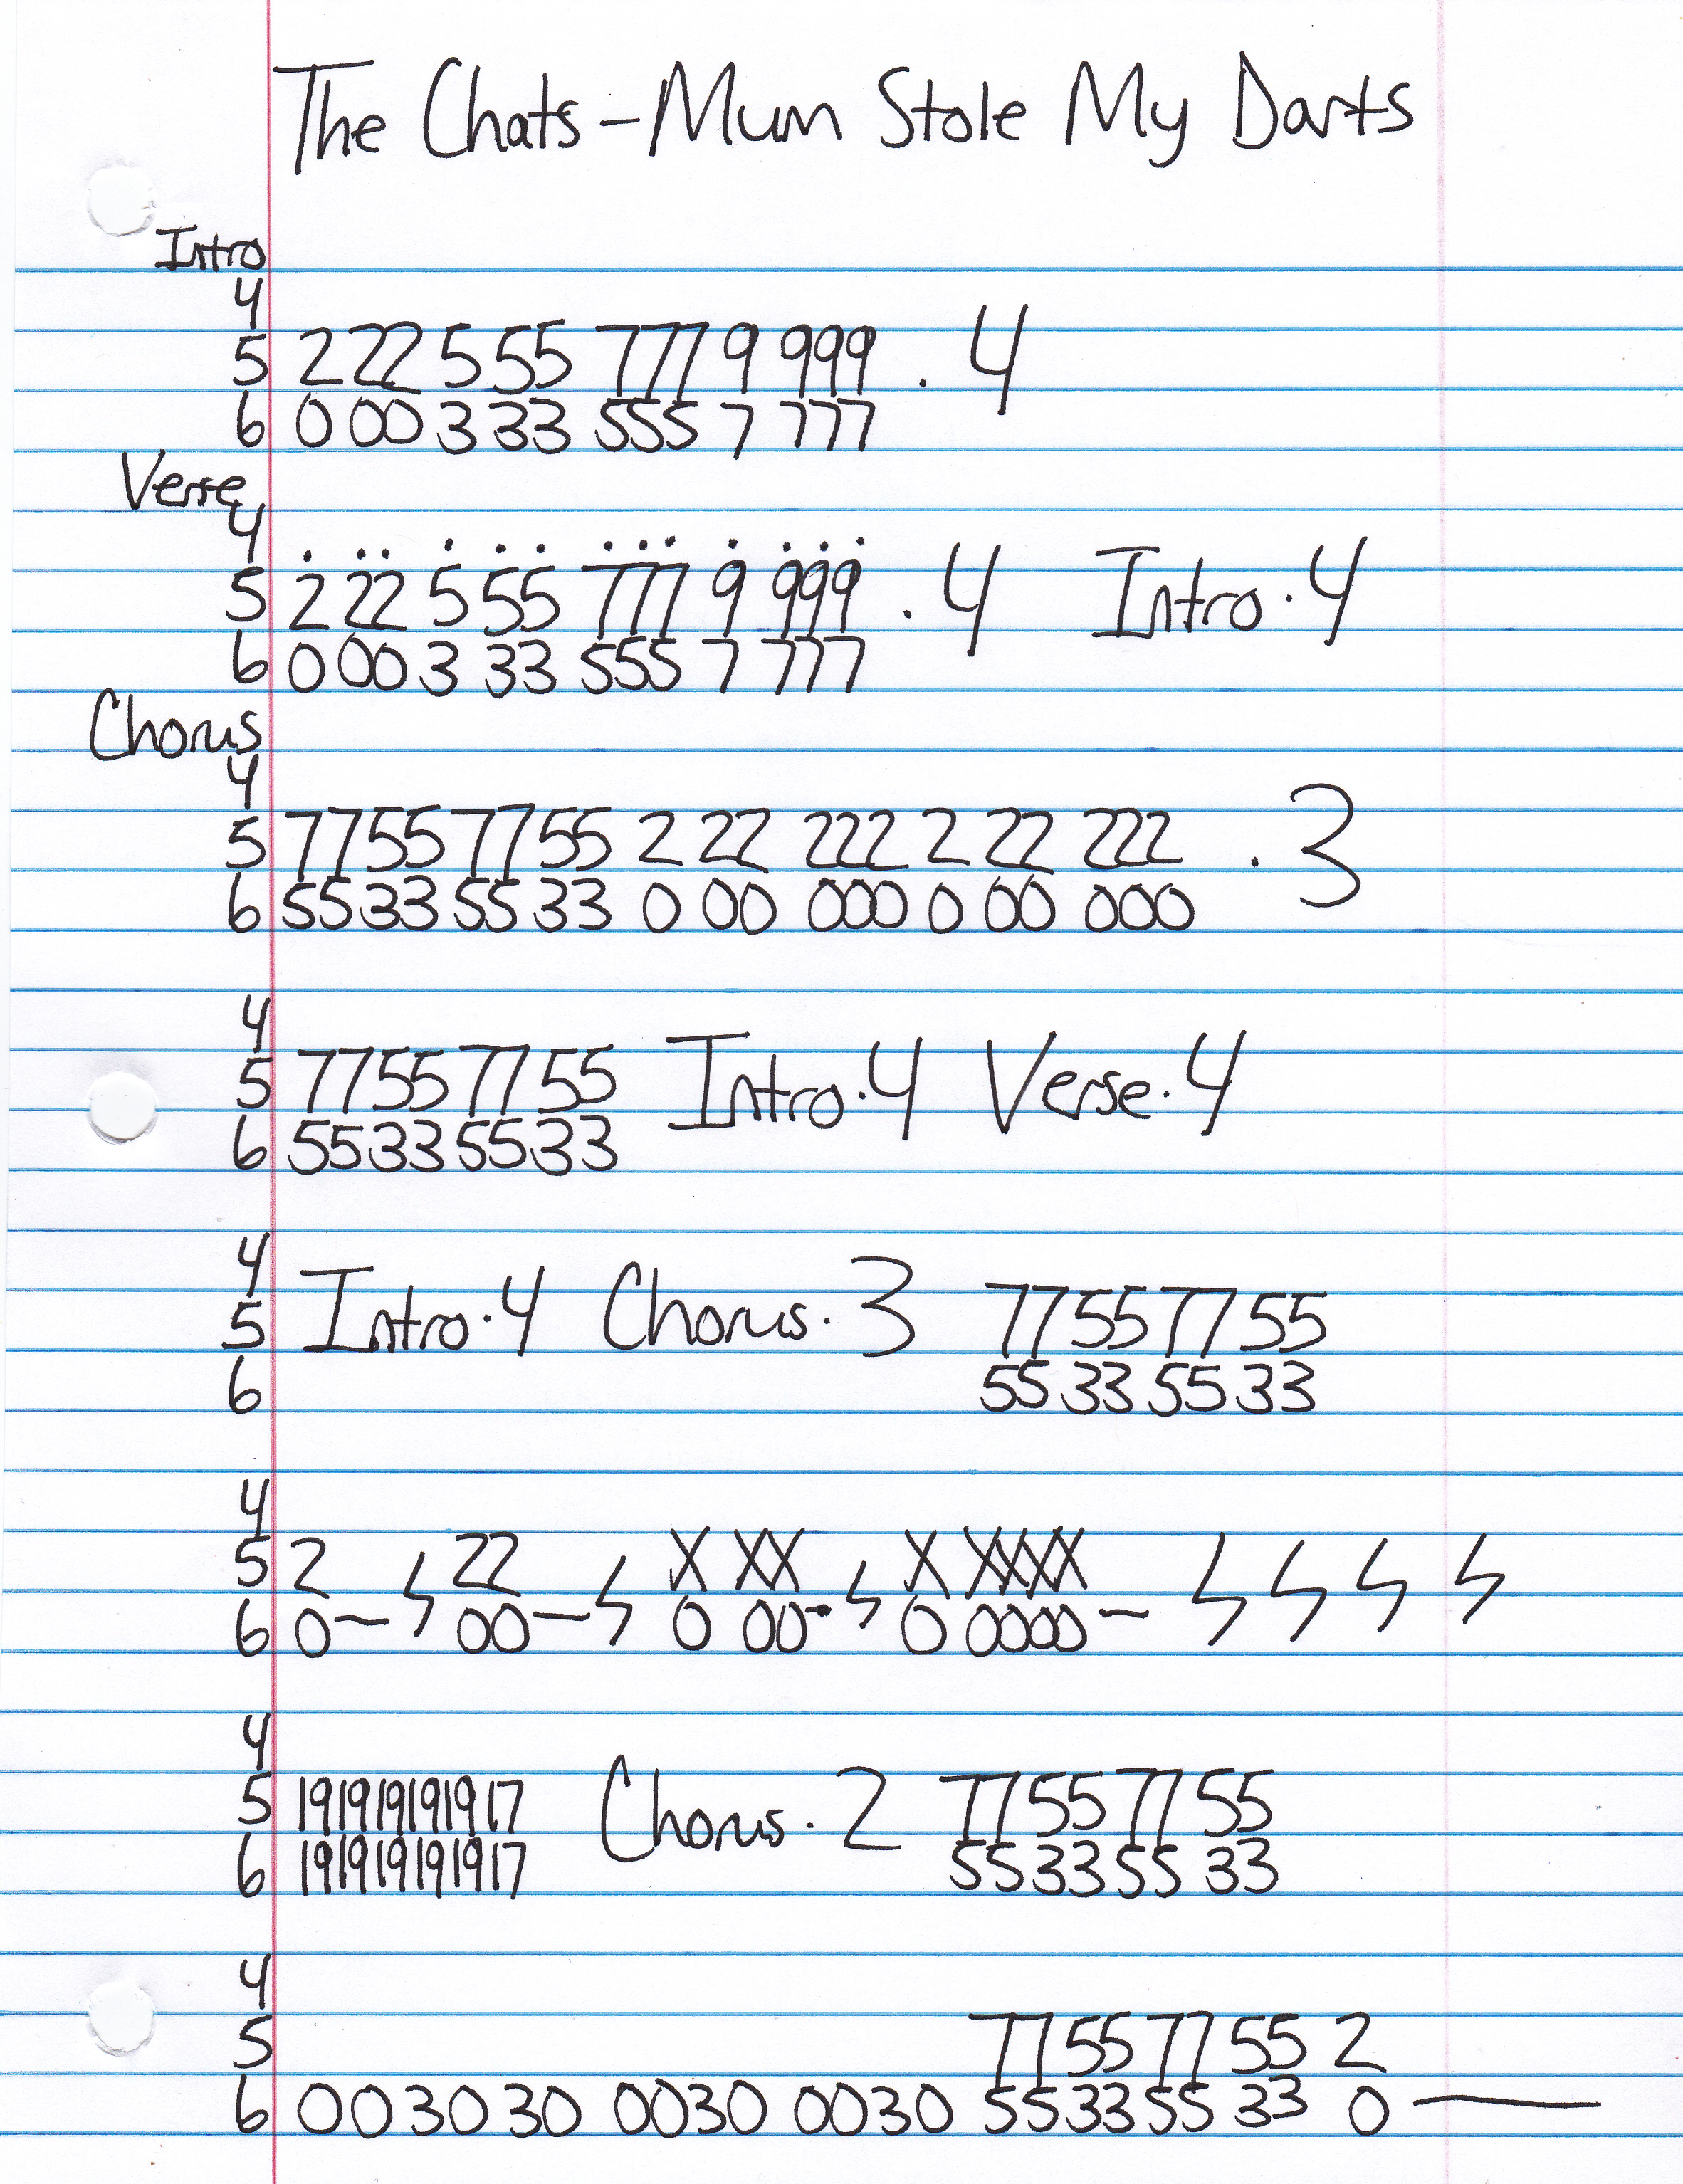 The Chats - Mum Stole My Darts
Intro
4
5 2 22 5 55 777 9 999 . 4
6 0 00 3 33 555 7 777
Verse
4
5 2 22 5 55 777 9 999 . 4 Intro · 4
6 0 00 3 33 555 7 777
Chorus
4
5 77557755 2 22 222 2 22 222 . 3
6 55335533 0 00 000 0 00 000
4
5 77557755 Intro · 4 Verse · 4
6 55335533
4
5 Intro · 4 Chorus · 3 77557755
6 55335533
4
5 2 22 X XX X XXXX
6 0– 00– 0 00- 0 0000–
4
5 191919191917 Chorus · 2 77557755
6 191919191917 55335533
4
5 77557755 2
6 003030 0030 0030 55335533 0—